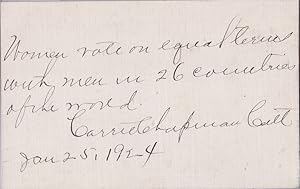 Women vote on equal terms
with men in 26 countries
of the world.
Carrie Chapman Catt
Jan 25, 1924